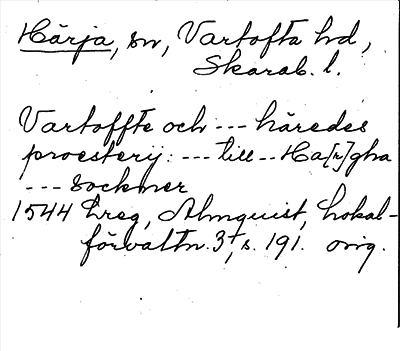 Härja, sn, Vartofta hd,
Skarab. l.
Vartoffte och --- häredes
proesterij: --- till -- Ha[r]gha
--- sockner
1544 Lreg, Almquist, Lokal-
förvaltn. 3, s. 191. orig.